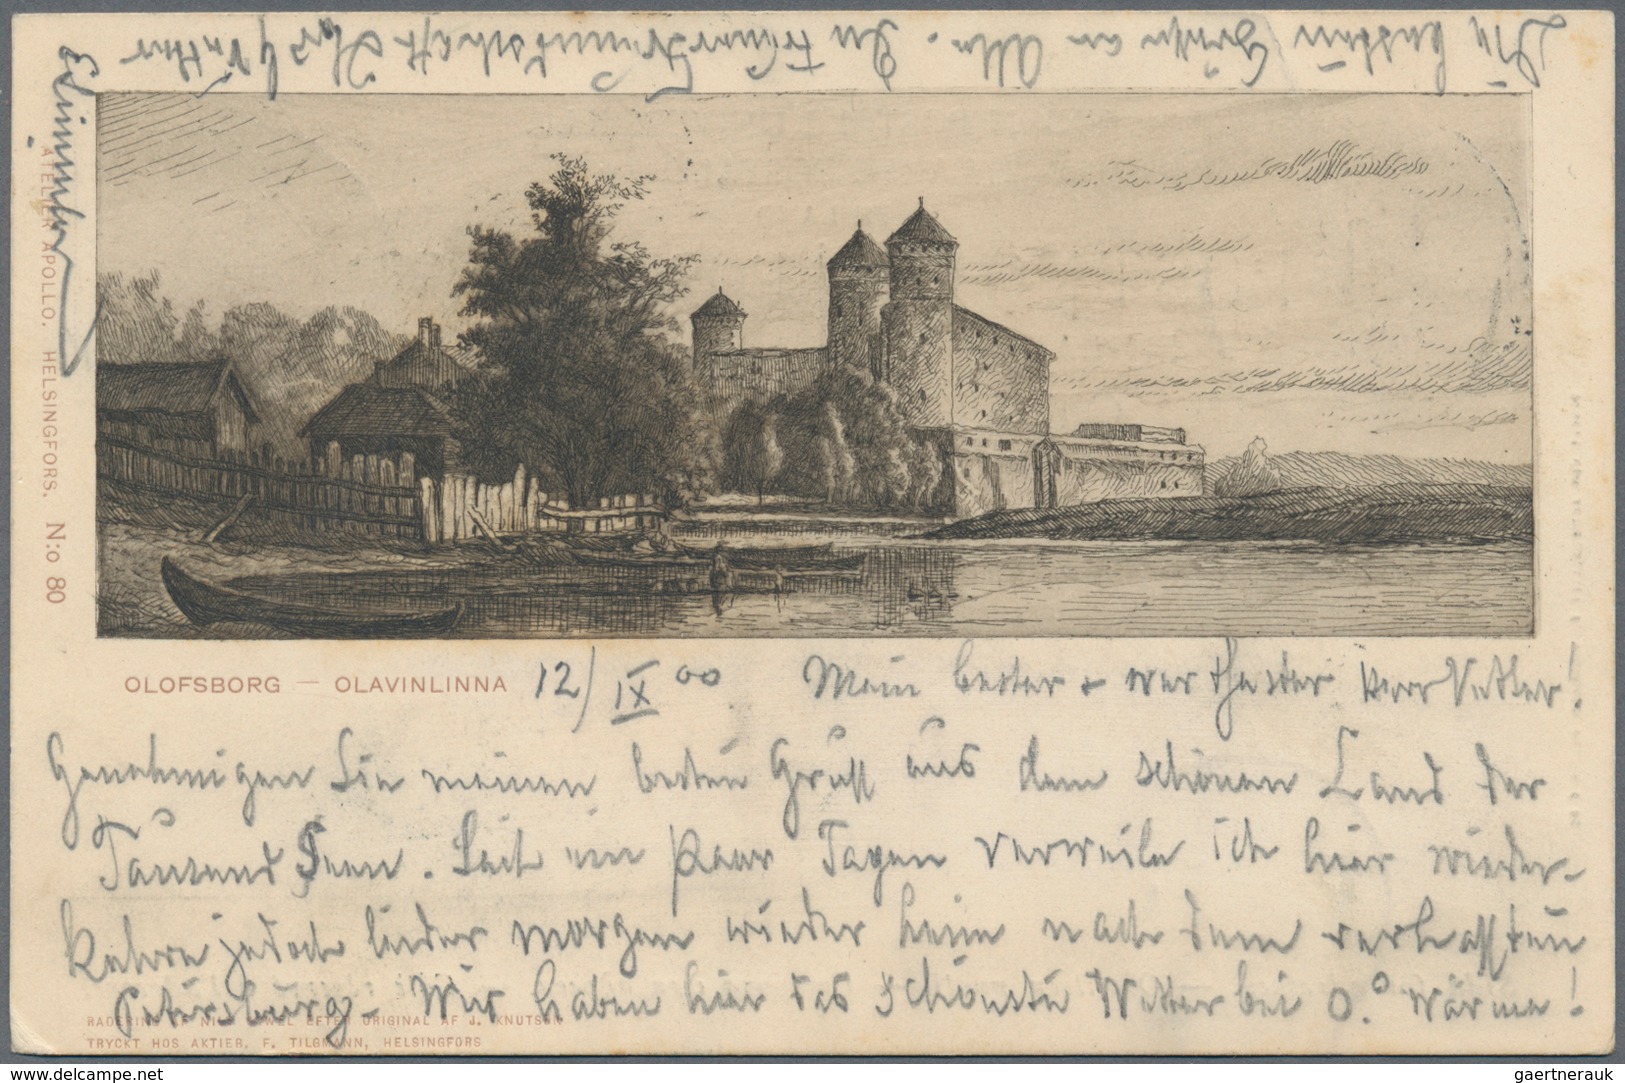 OLOFSBORG — OLAVINLINNA
12/IX 00 Mein bester + werthester Herr Vetter!
Genehmigen Sie meinen besten Gruß aus dem schönen Land der
Tausend Seen. Seit ein paar Tagen verweile ich hier wieder-
kehre jedoch leider morgen wieder heim nach dem verhaßten
Petersburg – Wir haben hier das schönste Wetter bei 0.° Wärme!
Die besten Grüße an Alle. In treuer Freundschaft Ihr
ATELIER APOLLO. HELSINGFORS. N:o 80
RADERING AF EFTER ORIGINAL AF J. KNUTSON
TRYCKT HOS AKTIEB. F. TILGMANN, HELSINGFORS
delcampe.net
gaertnerauk